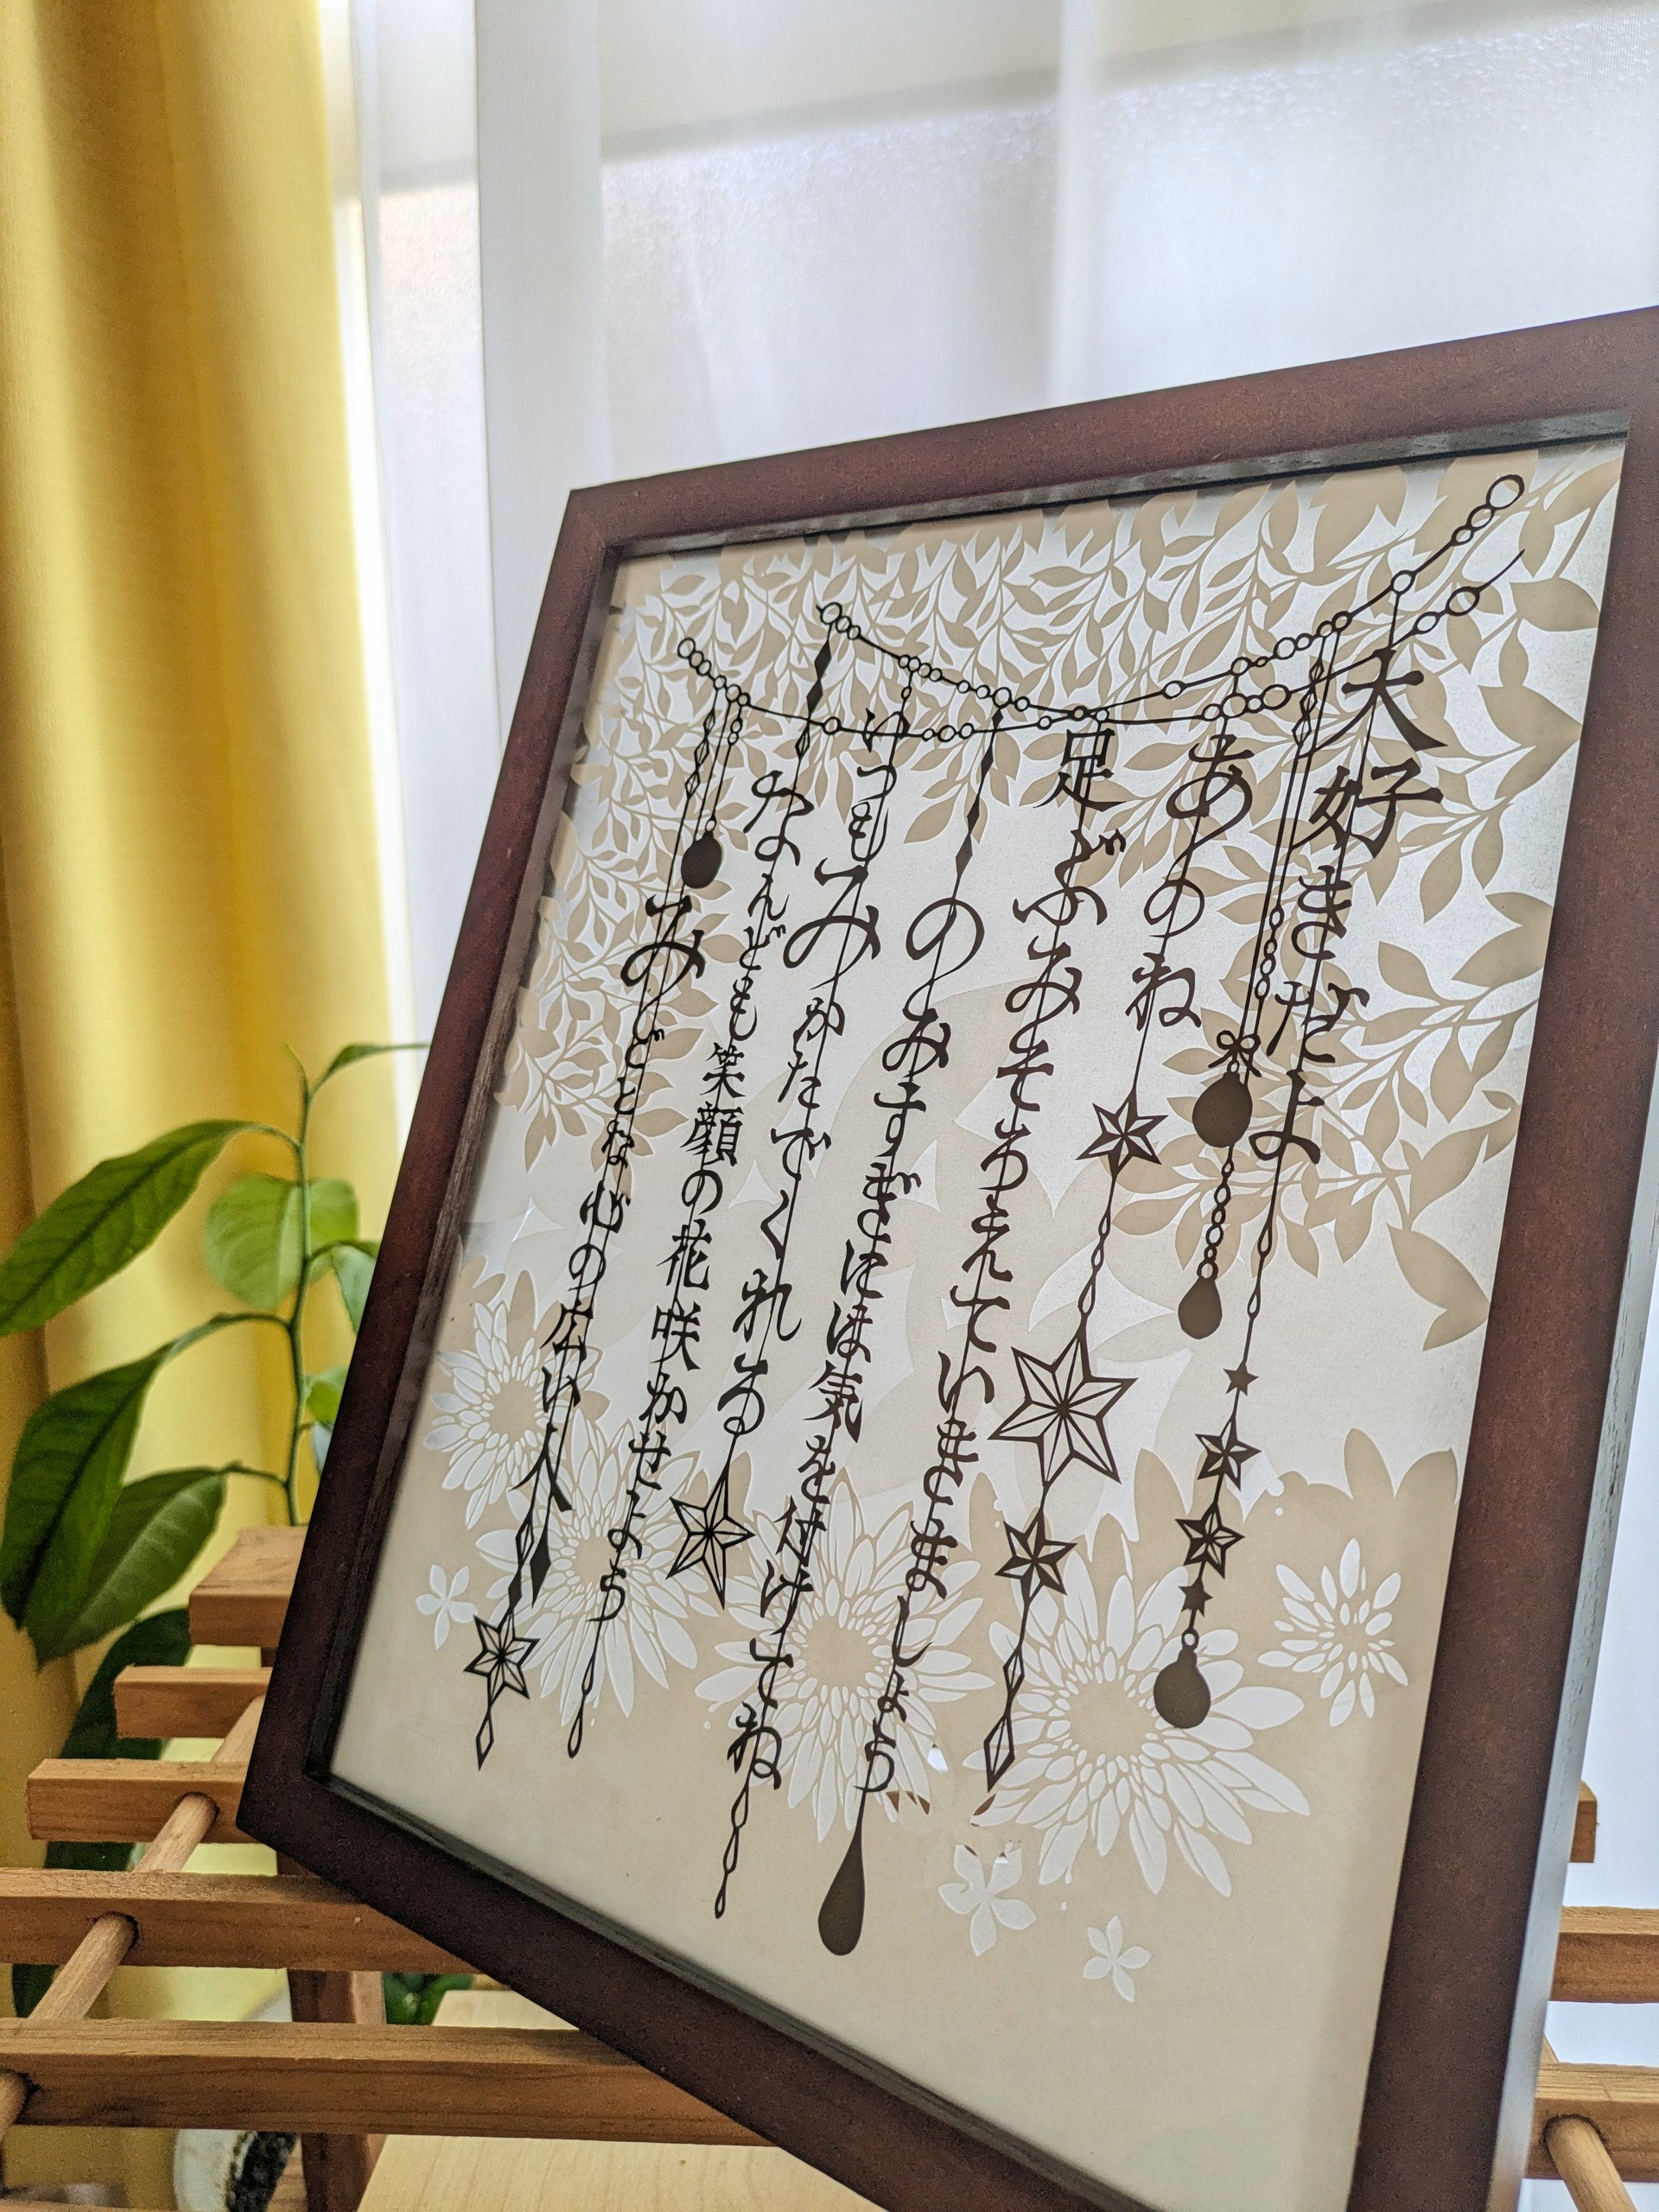 大好きだよ
あのね
足ぶみそろえていきましょう
のみすぎには気を付けてね
いつもみかたでくれる
なんども笑顔の花咲かせよう
みどとね心の広い人